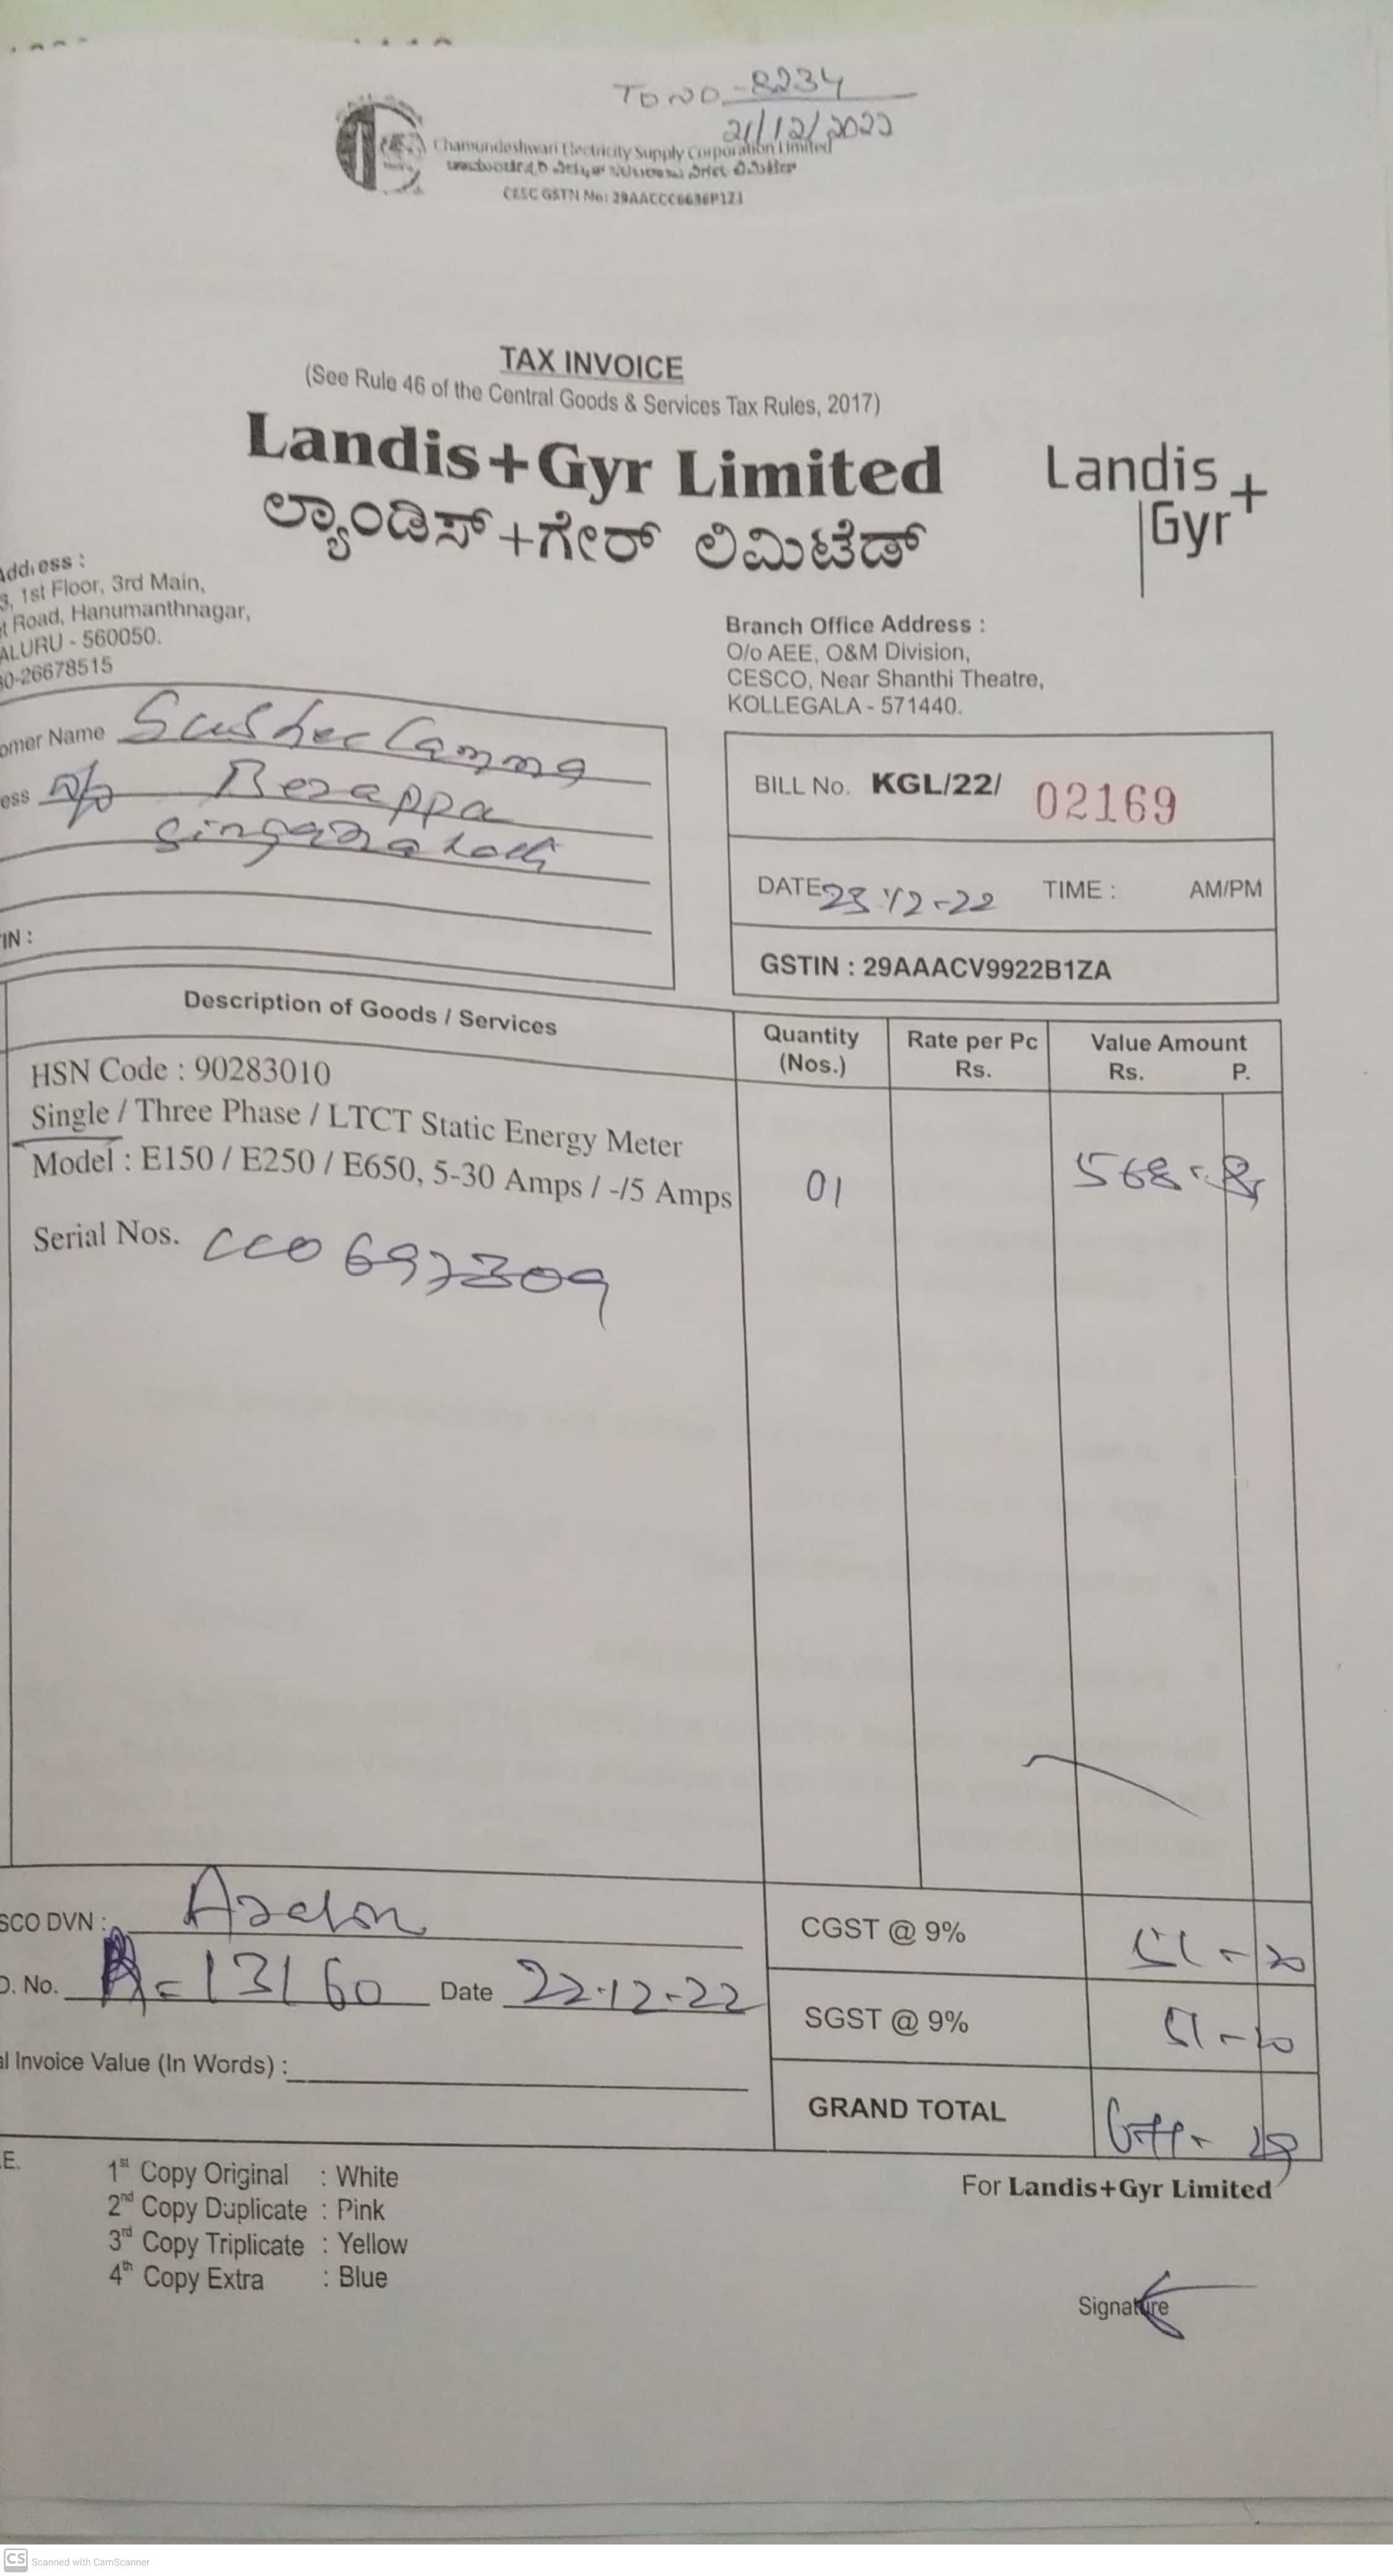 TO NO - 8234
21/12/2022
Chamundeshwari Electricity Supply Corporation Limited
CESC GSTN No: 29AACCC6636P1Z1
TAX INVOICE
(See Rule 46 of the Central Goods & Services Tax Rules, 2017)
Landis+Gyr Limited
ಲ್ಯಾಂಡಿಸ್+ಗೇರ್ ಲಿಮಿಟೆಡ್
Landis
Gyr+
Address :
3, 1st Floor, 3rd Main,
t Road, Hanumanthnagar,
ALURU - 560050.
30-26678515
Branch Office Address :
O/o AEE, O&M Division,
CESCO, Near Shanthi Theatre,
KOLLEGALA - 571440.
omer Name
ess
IN :
BILL No. KGL/22/ 02169
DATE 23 12-22 TIME : AM/PM
GSTIN : 29AAACV9922B1ZA
Description of Goods / Services Quantity (Nos.) Rate per Pc Rs. Value Amount Rs. P.
HSN Code : 90283010
Single / Three Phase / LTCT Static Energy Meter
Model : E150 / E250 / E650, 5-30 Amps / -/5 Amps 01
Serial Nos. CC0697309
SCO DVN :
D. No. 13160 Date 22-12-22
al Invoice Value (In Words) :
CGST @ 9% 51-20
SGST @ 9% 51-20
GRAND TOTAL
E.
1st Copy Original : White
2nd Copy Duplicate : Pink
3rd Copy Triplicate : Yellow
4th Copy Extra : Blue
For Landis+Gyr Limited
Signature
CS Scanned with CamScanner